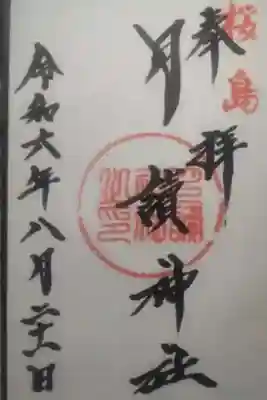 桜島
奉拝
月讀神社
令和六年八月二十一日